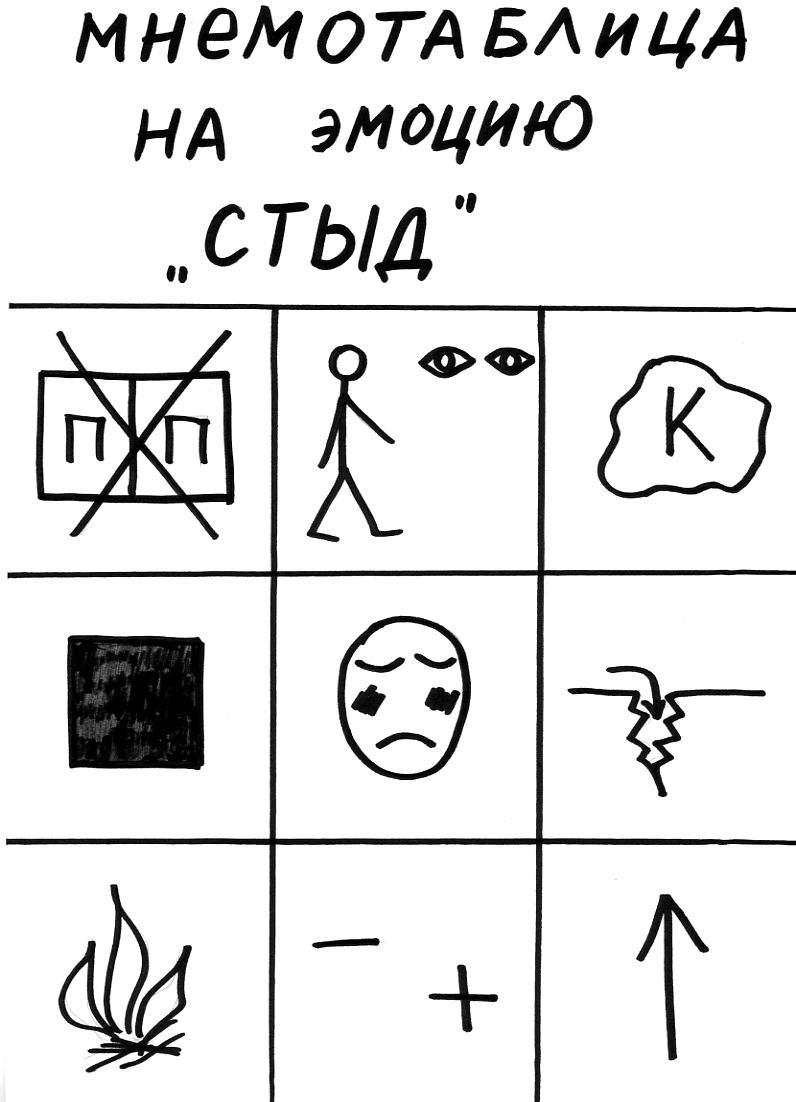 МНЕМОТАБЛИЦА
НА ЭМОЦИЮ
„СТЫД"
П П
К
− +